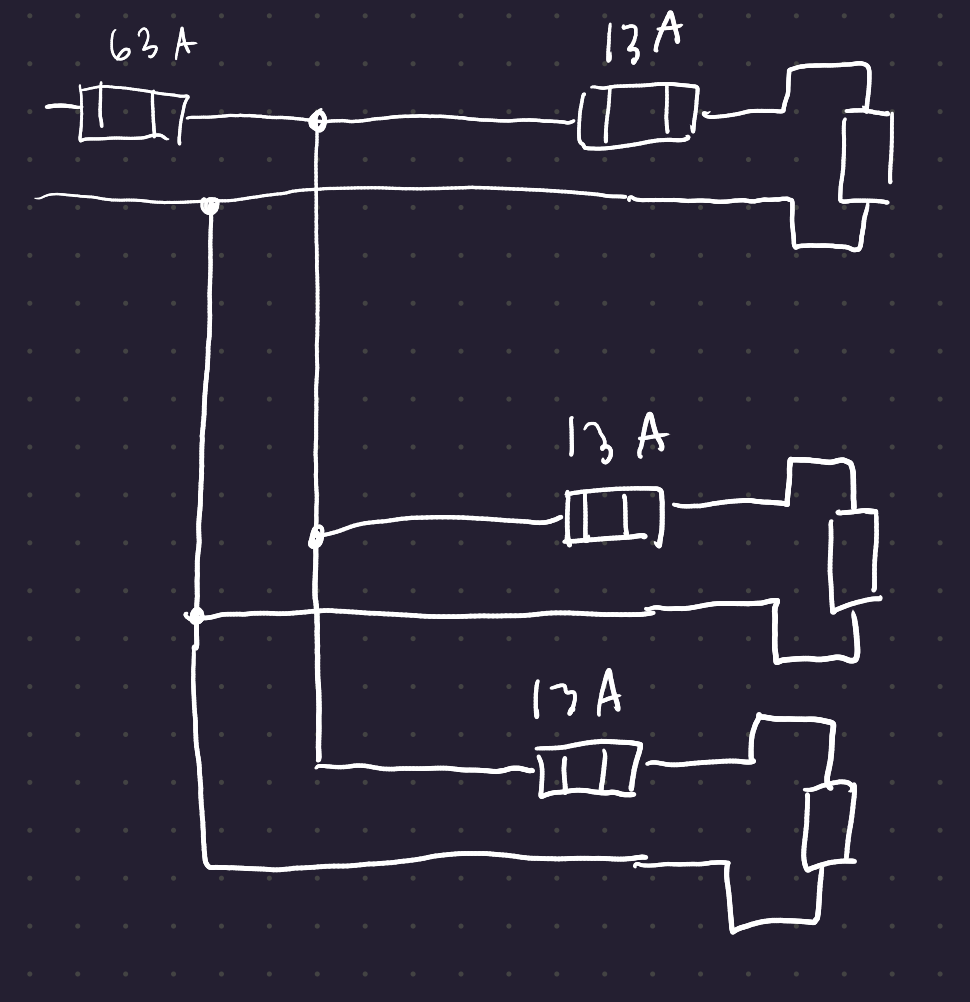 63 A
13 A
13 A
13 A